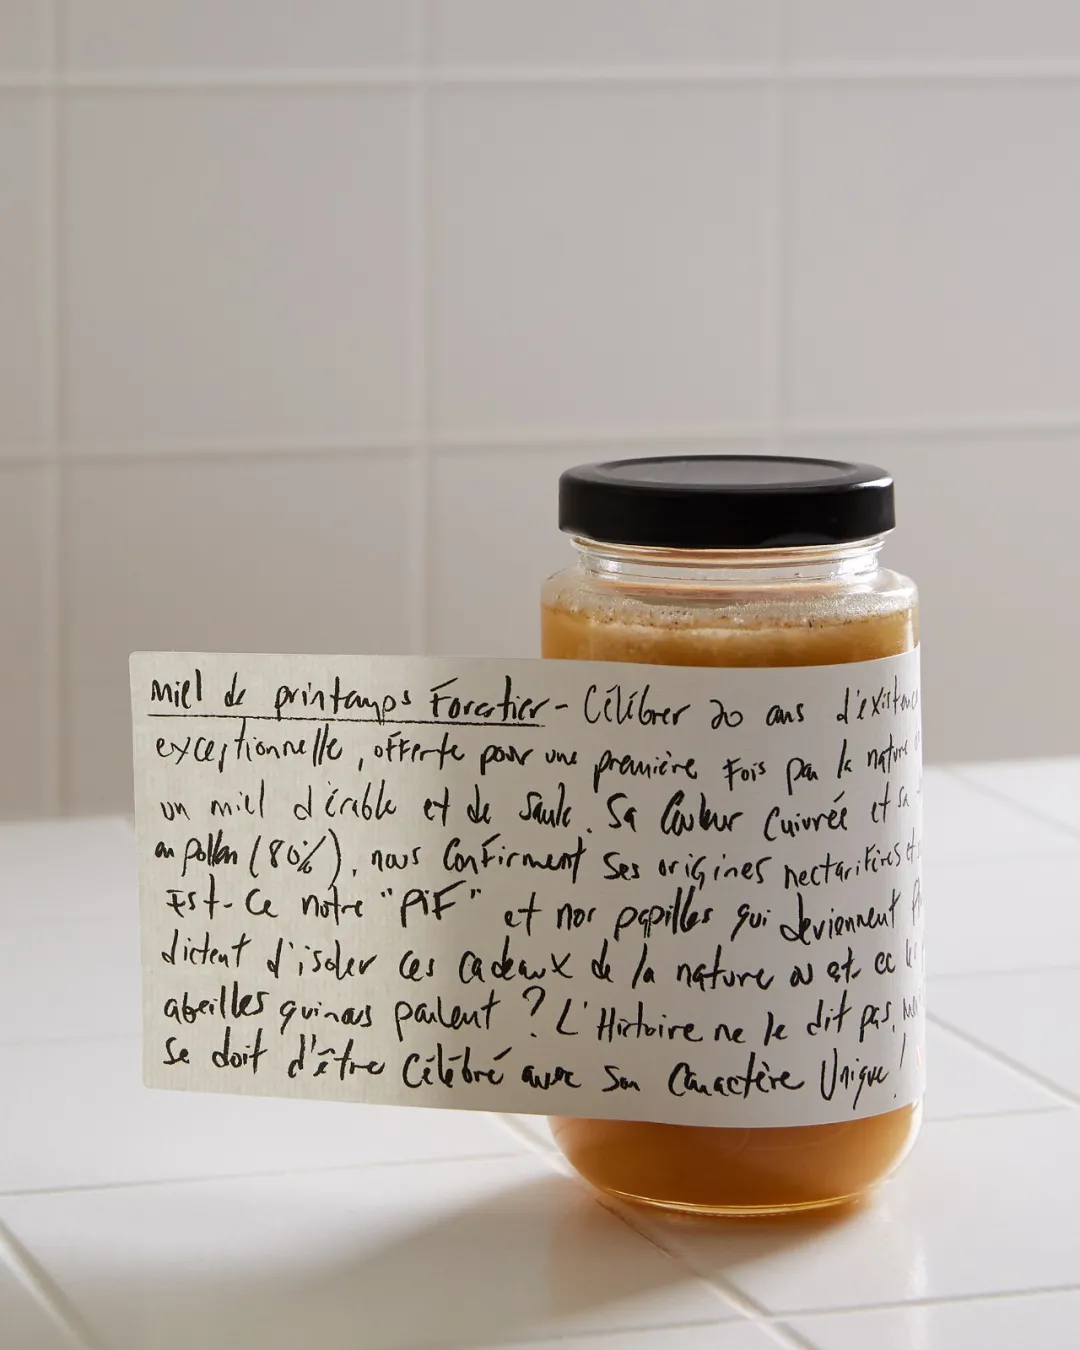 Miel de printemps Forestier - Célébrer 20 ans d'existence
exceptionnelle, offerte pour une première Fois par la nature
un miel d'érable et de Saule. Sa Couleur Cuivrée et sa
en pollen (80%), nous Confirment ses origines nectarifères et
Est-Ce notre "PiF" et nos papilles qui deviennent
dictent d'isoler ces Cadeaux de la nature ou est-ce les
abeilles qui nous parlent ? L'Histoire ne le dit pas,
se doit d'être Célébré avec son Caractère Unique !